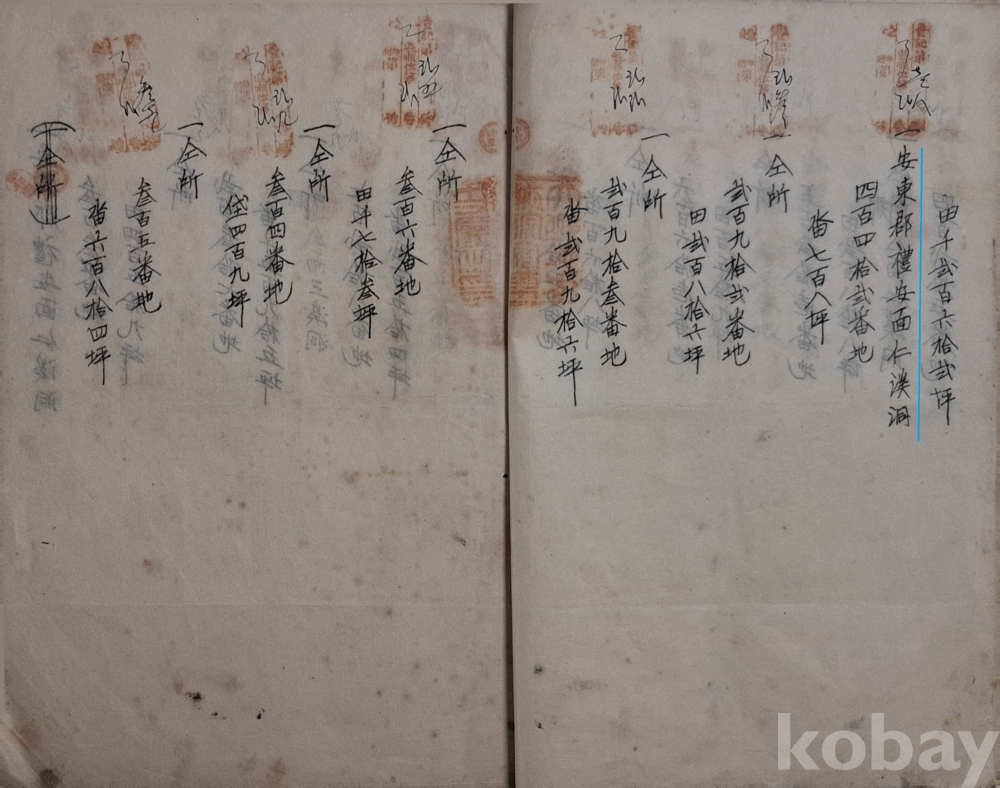 田千弐百六拾弐坪
一 安東郡禮安面仁溪洞
四百四拾弐番地
畓七百八坪
一 仝所
弐百九拾弐番地
田弐百八拾六坪
一 仝所
弐百九拾叁番地
畓弐百九拾六坪
一 仝所
叁百六番地
田千七拾叁坪
一 仝所
叁百四番地
垈四百九坪
一 仝所
叁百五番地
畓六百八拾四坪
一 仝所
kobay